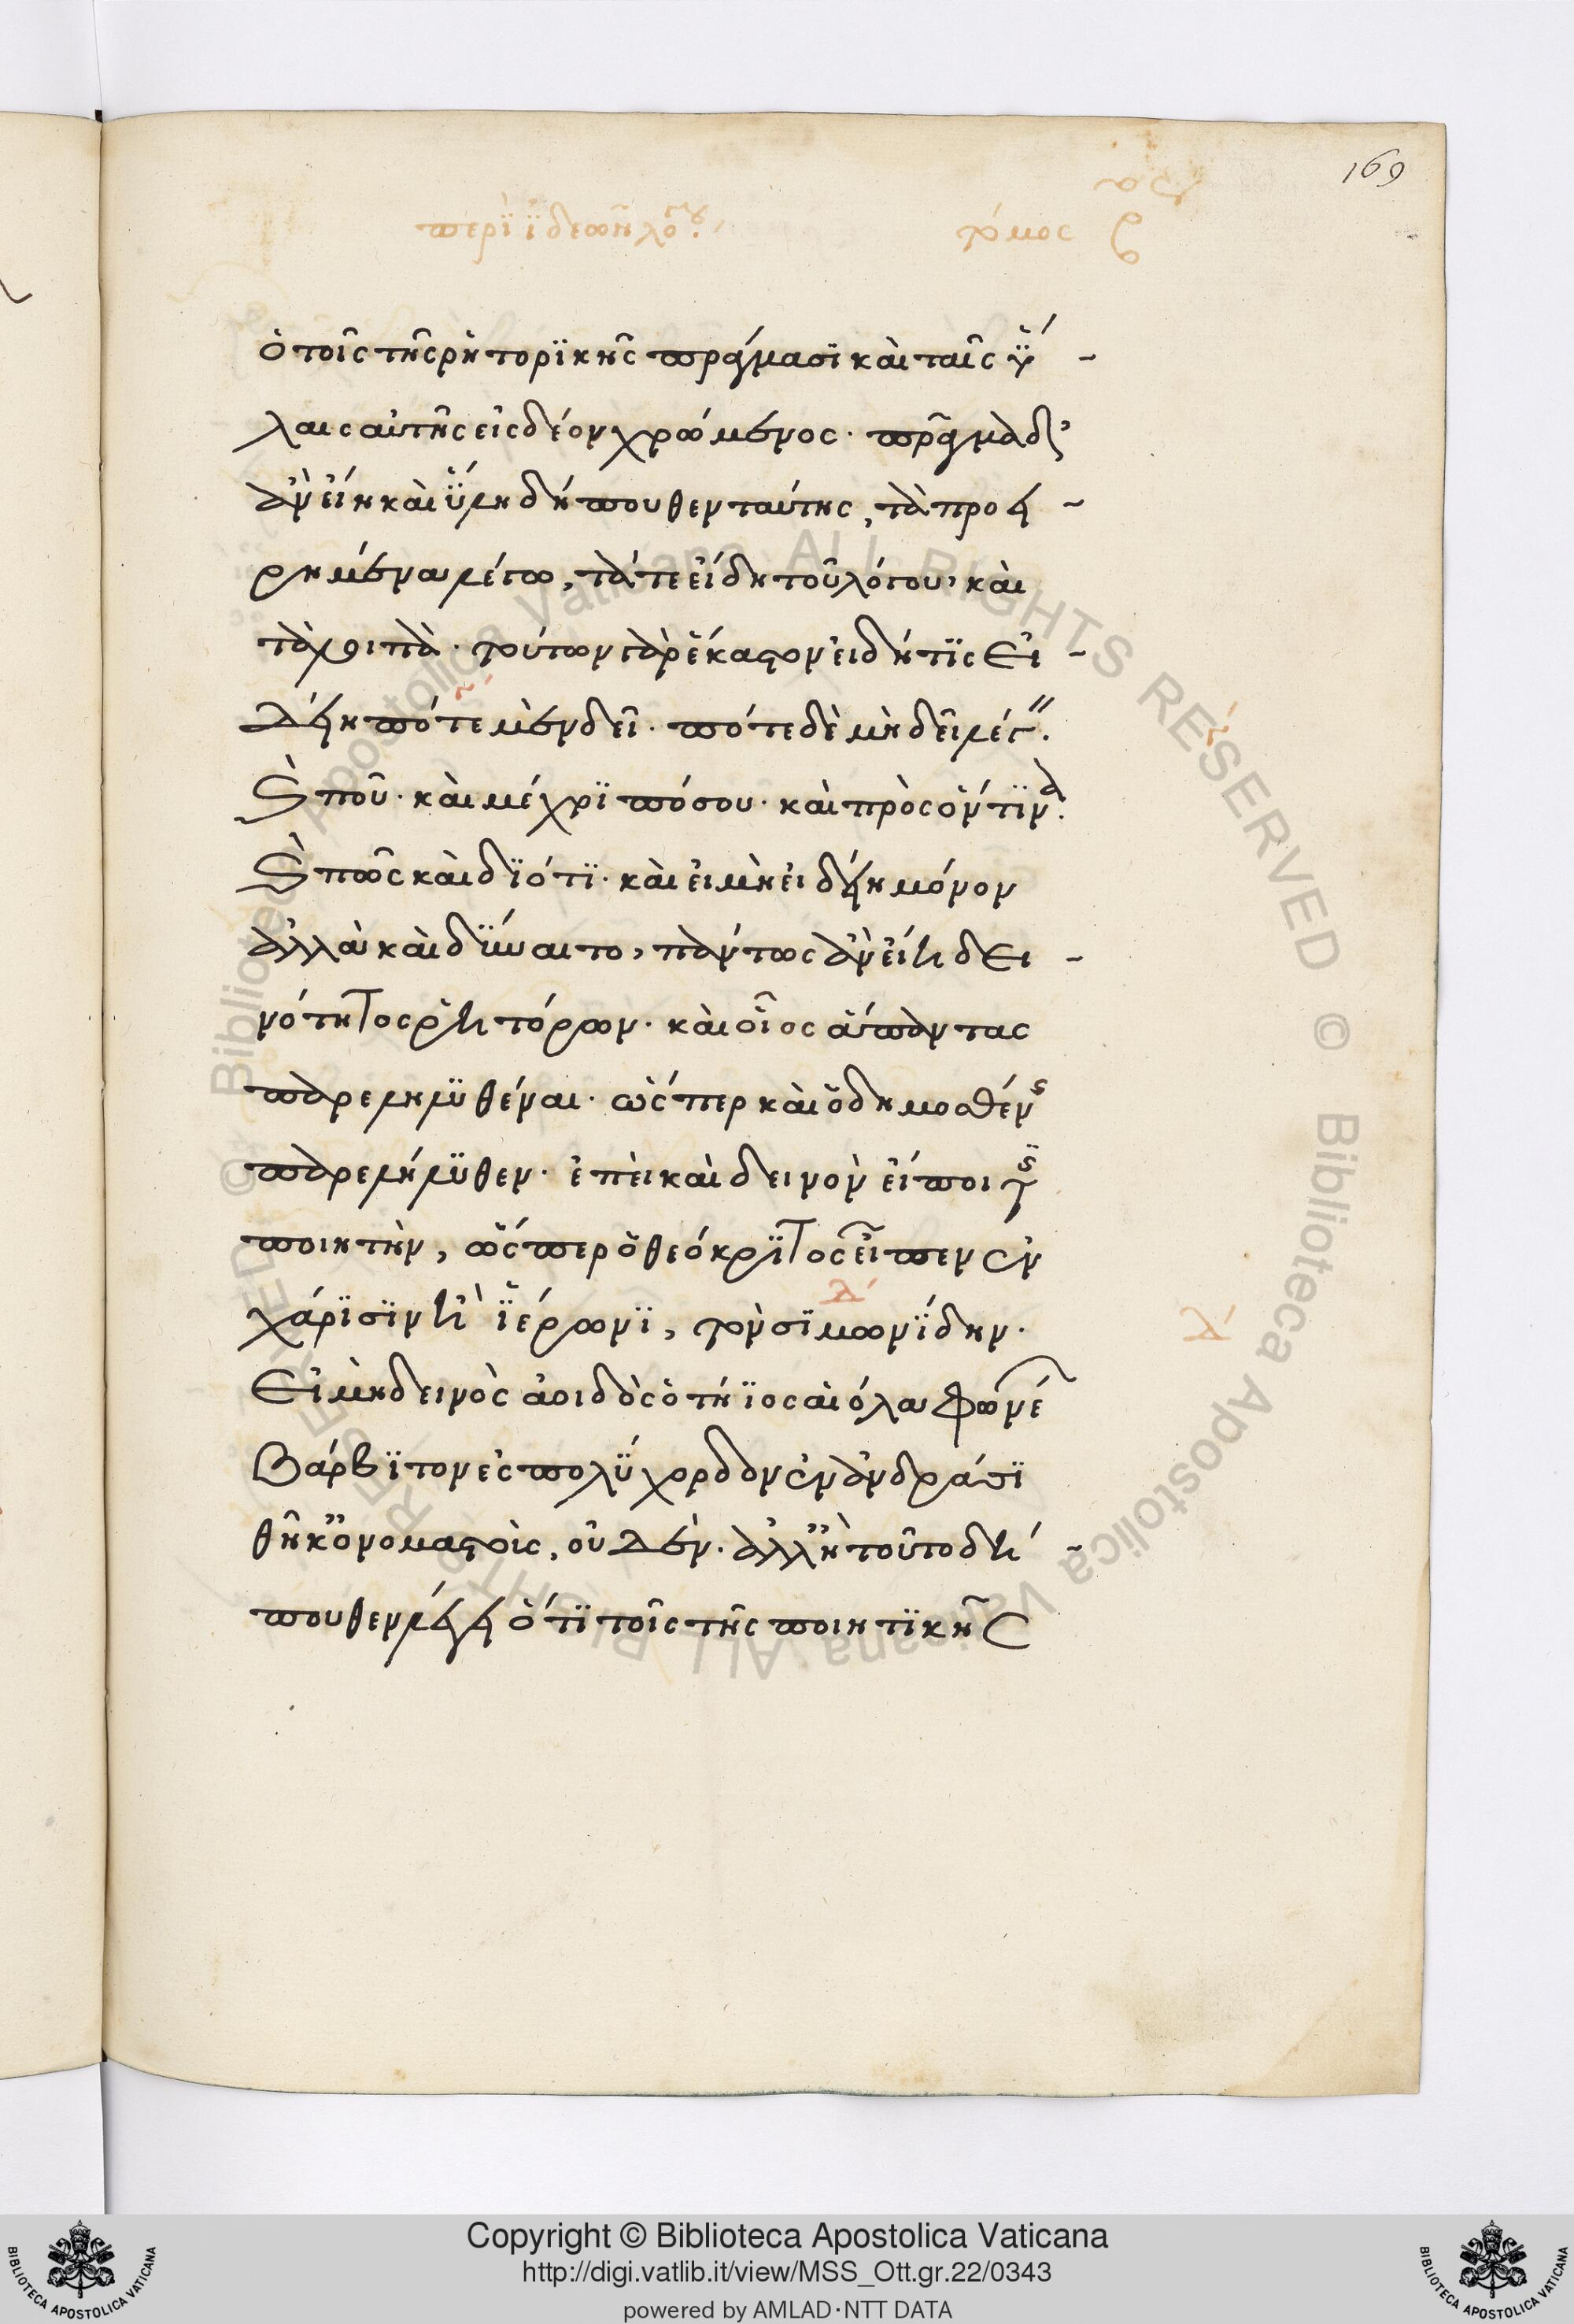 169
περὶ ἰδεῶν λόγου.
τόμος
ὁ τοῖς τῆς ῥητορικῆς πράγμασι καὶ ταῖς ὕ-
λαις αὐτῆς εἰς δέον χρώμενος· πρᾶγμα δ᾽
ἂν εἴη καὶ ὕλη δήπουθεν ταύτης, τὰ προει-
ρημένα λέγω, τά τε εἴδη τοῦ λόγου, καὶ
τὰ λοιπὰ· τούτων γὰρ ἕκαστον εἰ δή τις εἰ-
δείη πότε μὲν δεῖ· πότε δὲ μὴ δεῖ λέγειν.
καὶ ποῦ· καὶ μέχρι πόσου· καὶ πρὸς ὅντινα.
καὶ πῶς καὶ διότι· καὶ εἰ μὴ εἰδείη μόνον
ἀλλὰ καὶ δύναιτο, πάντως ἂν εἴη δει-
νότητος ῥητόρων· καὶ οἷος ἅπαντας
παρεληλυθέναι· ὥσπερ καὶ ὁ δημοσθένης
παρελήλυθεν· ἐπεὶ καὶ δεινὸν εἴποι τις
ποιητὴν, ὥσπερ ὁ θεόκριτος εἶπεν ἐν
χάρισιν ἢ ἱέρωνι, τὸν σιμωνίδην·
Εἰ μὴ δεινὸς ἀοιδὸς ὁ τήϊος αἰόλα φωνέων
Βάρβιτον ἐς πολύχορδον ἐν ἀνδράσι
θῆκ᾽ ὀνομαστοὺς, οὐδὲν ἄλλ᾽ ἢ τοῦτο δή-
πουθεν λέγει ὅτι τοῖς τῆς ποιητικῆς
Copyright © Biblioteca Apostolica Vaticana
http://digi.vatlib.it/view/MSS_Ott.gr.22/0343
powered by AMLAD·NTT DATA